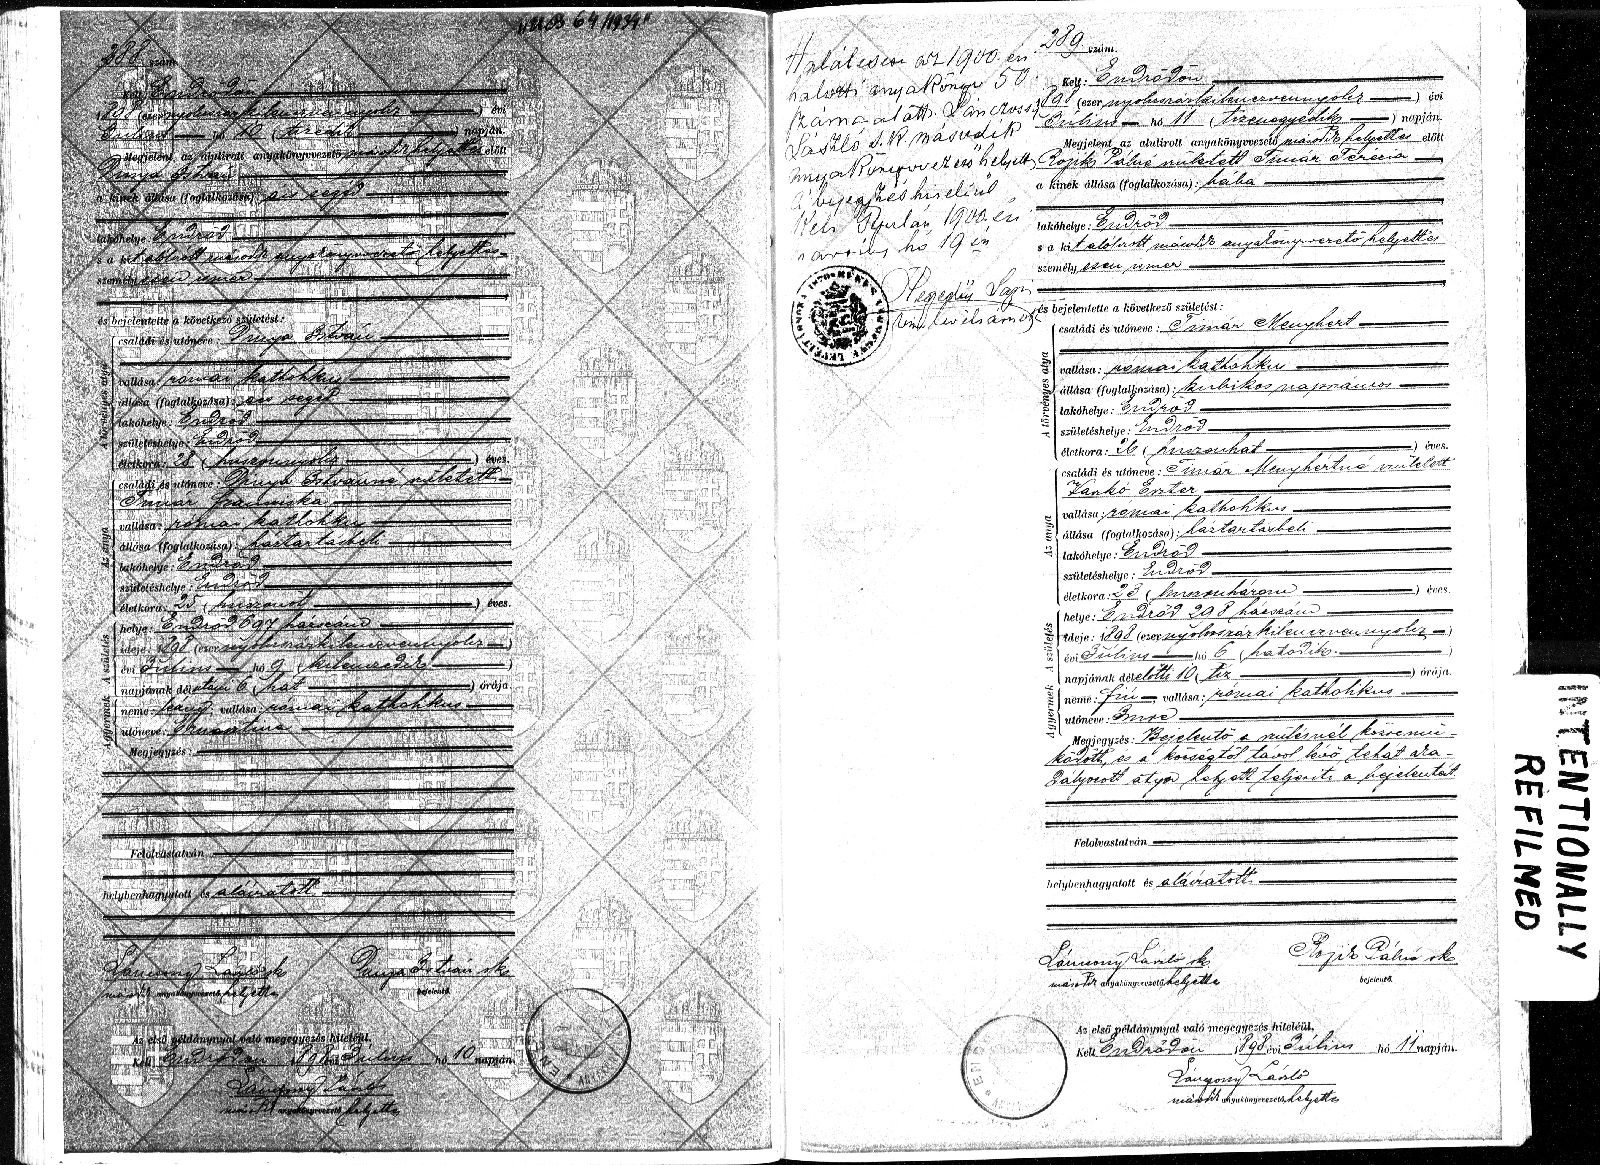 288 szám.
Kelt: Endrődön
1898 (ezer nyolcszázkilencvennyolcz) évi
Július hó 10 (tizedik) napján.
Megjelent az alulirott anyakönyvezető második helyettes előtt
István
a kinek állása (foglalkozása):
lakóhelye: Endrőd
s a kit alólirott második anyakönyvvezető helyettes
személyesen ismer
és bejelentette a következő születést:
A törvényes atya
családi és utóneve: István
vallása: római katholikus
állása (foglalkozása):
lakóhelye: Endrőd
születéshelye: Endrőd
életkora: 28 (huszonnyolcz) éves.
Az anya
családi és utóneve: Istvánné született
Timár Franciska
vallása: római katholikus
állása (foglalkozása): háztartásbeli
lakóhelye: Endrőd
születéshelye: Endrőd
életkora: 25 (huszonöt) éves.
A születés
helye: Endrőd 697 házszám
ideje: 1898 (ezer nyolcszázkilencvennyolcz)
évi Július hó 9 (kilenczedik)
napjának délelőtti 6 (hat) órája.
A gyermek
neme: leány; vallása: római katholikus
utóneve:
Megjegyzés:
Felolvastatván
helybenhagyatott és aláiratott.
Lánczony László sk
István sk
második anyakönyvvezető helyettes
bejelentő.
Az első példánynyal való megegyezés hiteléül.
Kelt Endrődön 1898 évi Július hó 10 napján.
Lánczony László
második anyakönyvvezető helyettes
Halálesete az 1900. évi
halotti anyakönyv 50.
száma alatt. Lánczony
László s.k. második
anyakönyvvezető helyett.
A bejegyzés hiteléül
Kelt Gyulán 1900. évi
hó 19 én
Hegedűs
289 szám.
Kelt: Endrődön
1898 (ezer nyolcszázkilencvennyolcz) évi
Július hó 11 (tizenegyedik) napján.
Megjelent az alulirott anyakönyvvezető második helyettes előtt
Rojik Pálné született Timár Terézia
a kinek állása (foglalkozása): bába
lakóhelye: Endrőd
s a kit alólirott második anyakönyvvezető helyettes
személyesen ismer
és bejelentette a következő születést:
A törvényes atya
családi és utóneve: Timár Menyhért
vallása: római katholikus
állása (foglalkozása): kubikos napszámos
lakóhelye: Endrőd
születéshelye: Endrőd
életkora: 26 (huszonhat) éves.
Az anya
családi és utóneve: Timár Menyhértné született
Vankó Eszter
vallása: római katholikus
állása (foglalkozása): háztartásbeli
lakóhelye: Endrőd
születéshelye: Endrőd
életkora: 23 (huszonhárom) éves.
A születés
helye: Endrőd 298 házszám
ideje: 1898 (ezer nyolcszázkilencvennyolcz)
évi Július hó 6 (hatodik)
napjának délelőtti 10 (tíz) órája.
A gyermek
neme: fiú; vallása: római katholikus
utóneve: Imre
Megjegyzés: Bejelentő a szülésnél közremű-
ködött, és a községtől távol lévő tehát aka-
dályozott atya helyett teljesíti a bejelentést.
Felolvastatván
helybenhagyatott és aláiratott.
Lánczony László sk
Rojik Pálné sk
második anyakönyvvezető helyettes
bejelentő.
Az első példánynyal való megegyezés hiteléül.
Kelt Endrődön 1898 évi Július hó 11 napján.
Lánczony László
második anyakönyvvezető helyettes
INTENTIONALLY
REFILMED